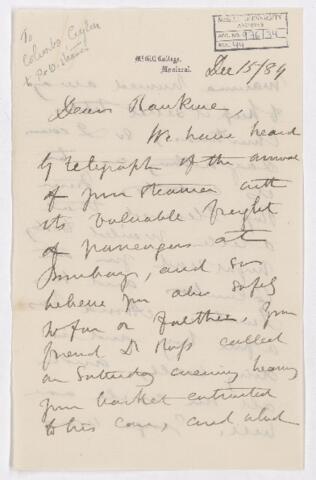 To
Colombo Ceylon
McGILL UNIVERSITY
ARCHIVES
ACC. NO. 976/34
REF. 44
McGill College,
Montreal.
Dec 15/84
Dear Rankine,
We have heard
by telegraph of the arrival
of your steamer with
its valuable freight
of passengers at
Bombay, and so
believe you also safely
so far on further. Your
friend Dr called
on Saturday evening bearing
your basket entrusted
to his care, and